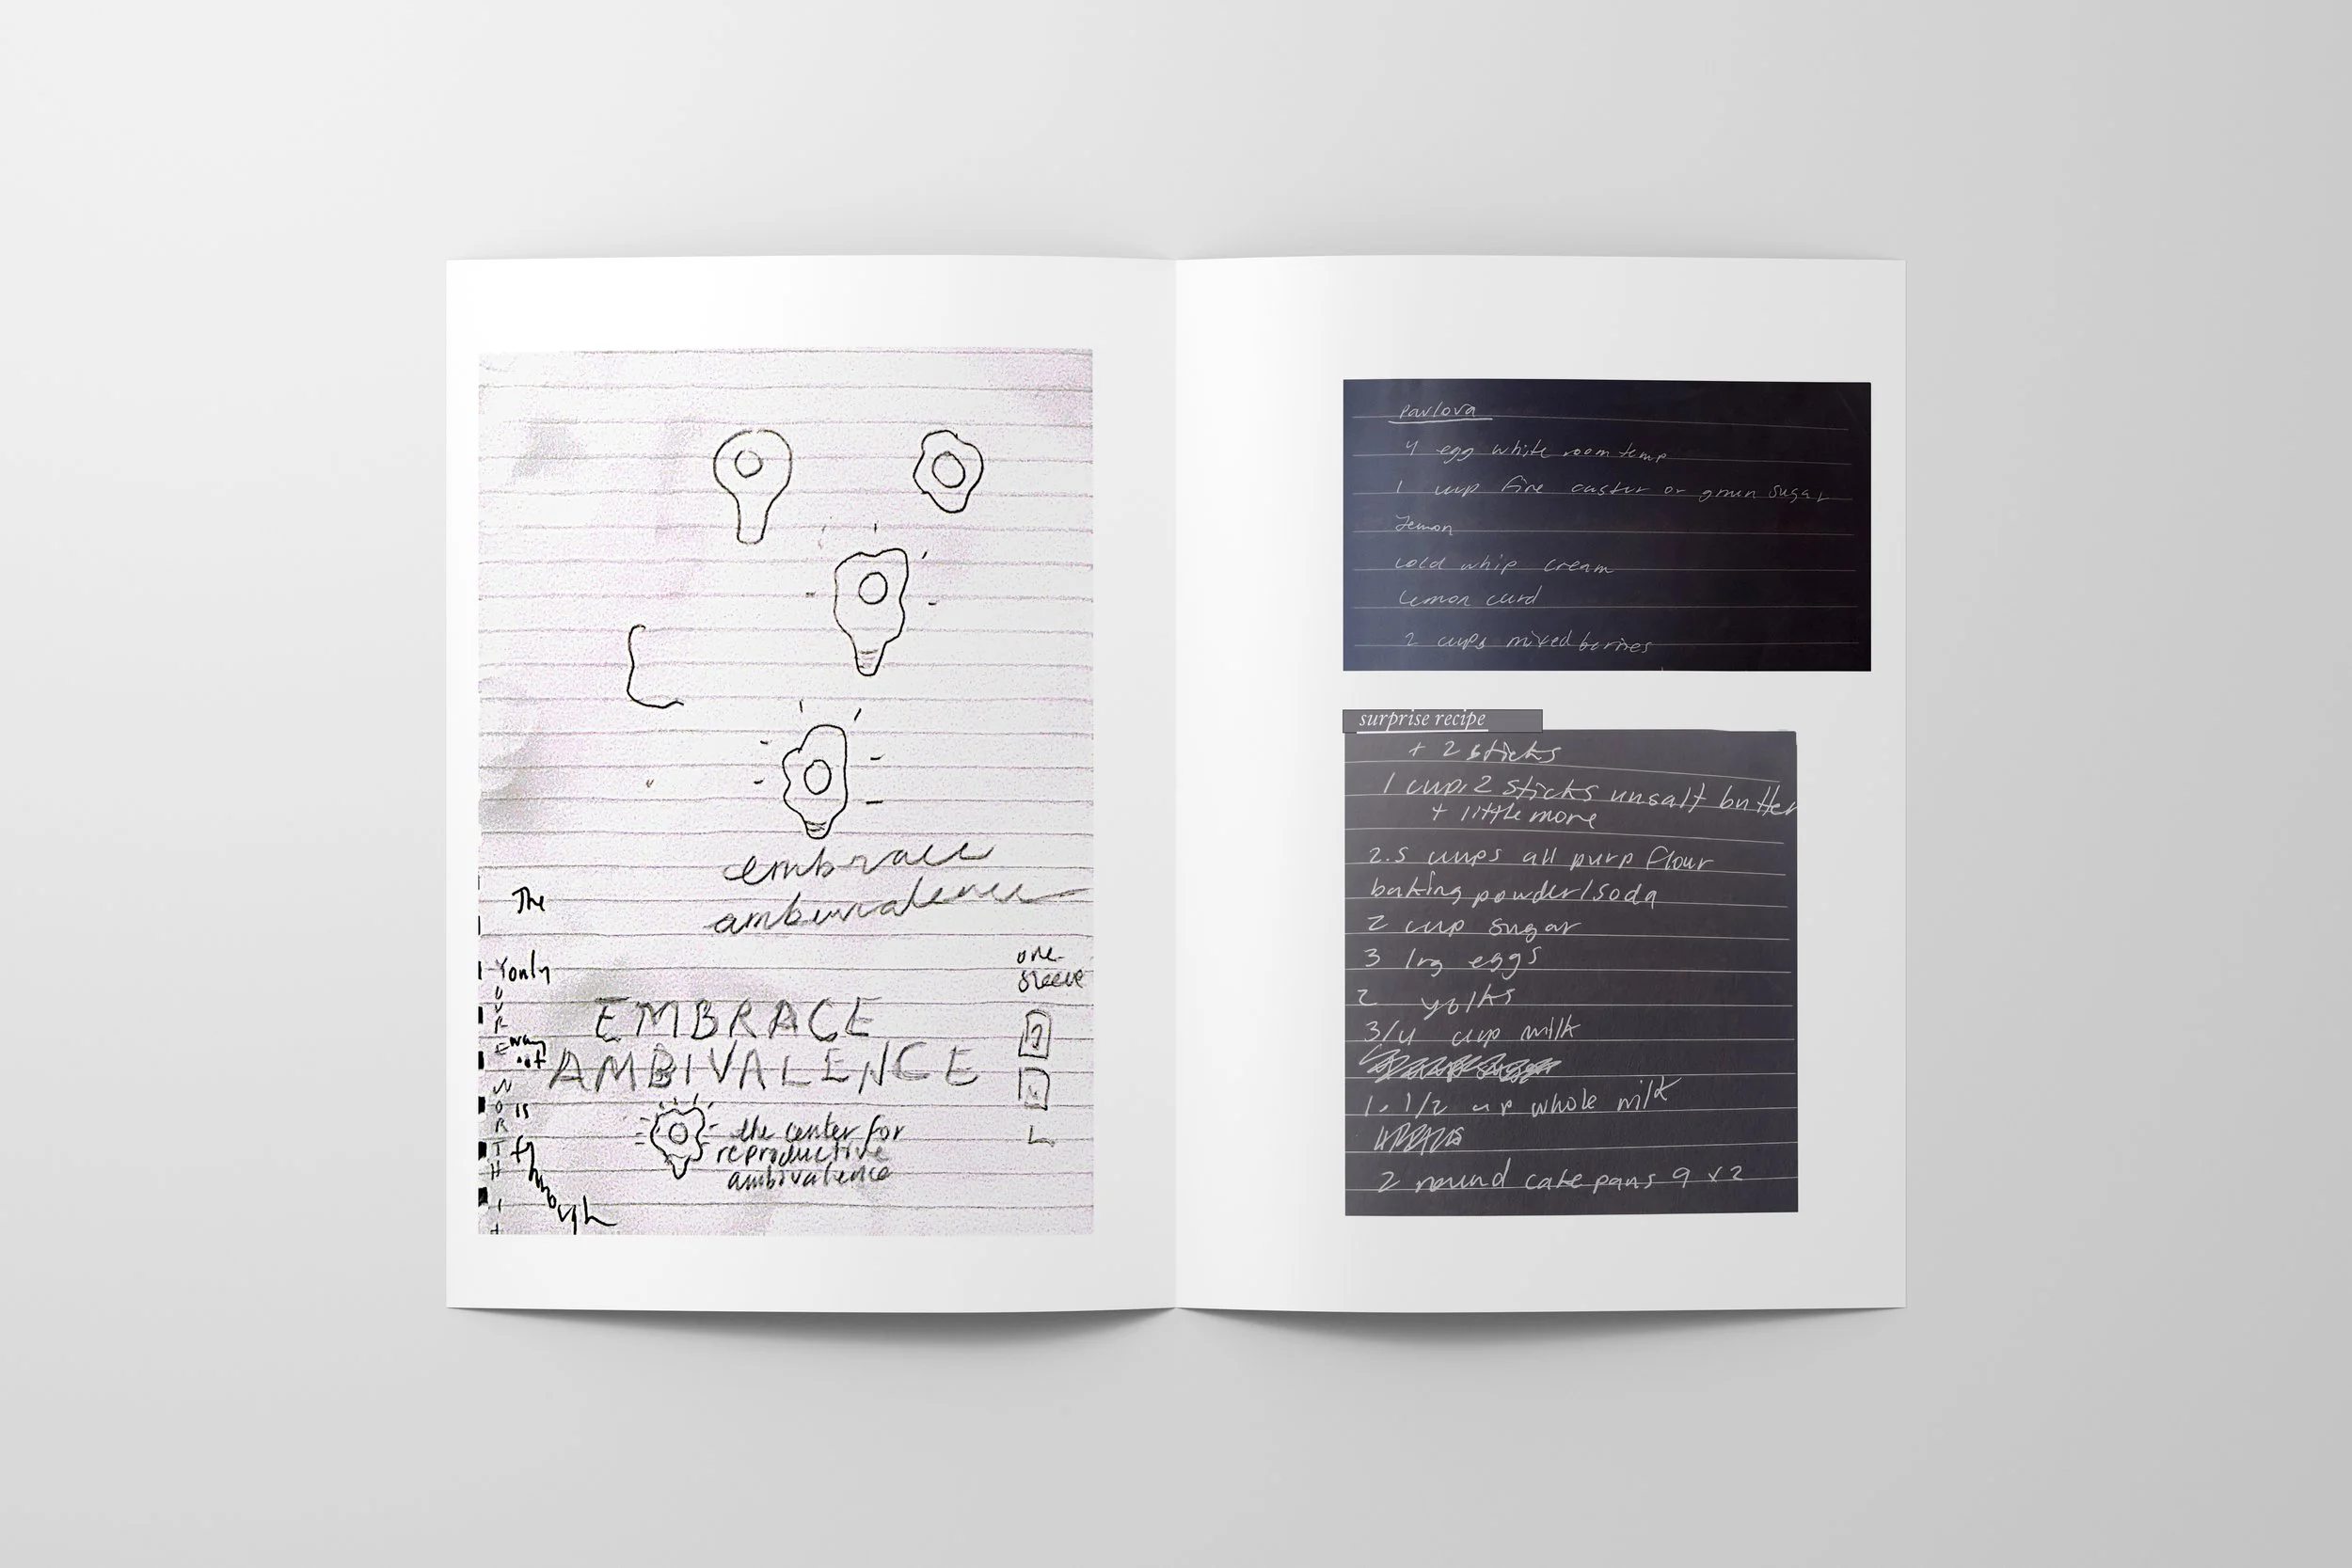 embrace
ambivalence
The
only
way
out
is
through
YOU'RE WORTH IT
one
sleeve
EMBRACE
AMBIVALENCE
the center for
reproductive
ambivalence
Pavlova
4 egg white room temp
1 cup fine caster or grnun sugar
Lemon
cold whip cream
Lemon curd
2 cups mixed berries
surprise recipe
+ 2 sticks
1 cup, 2 sticks unsalt butter
+ little more
2.5 cups all purp flour
baking powder/soda
2 cup sugar
3 lrg eggs
2 yolks
3/4 cup milk
1. 1/2 cup whole milk
2 round cake pans 9 x 2